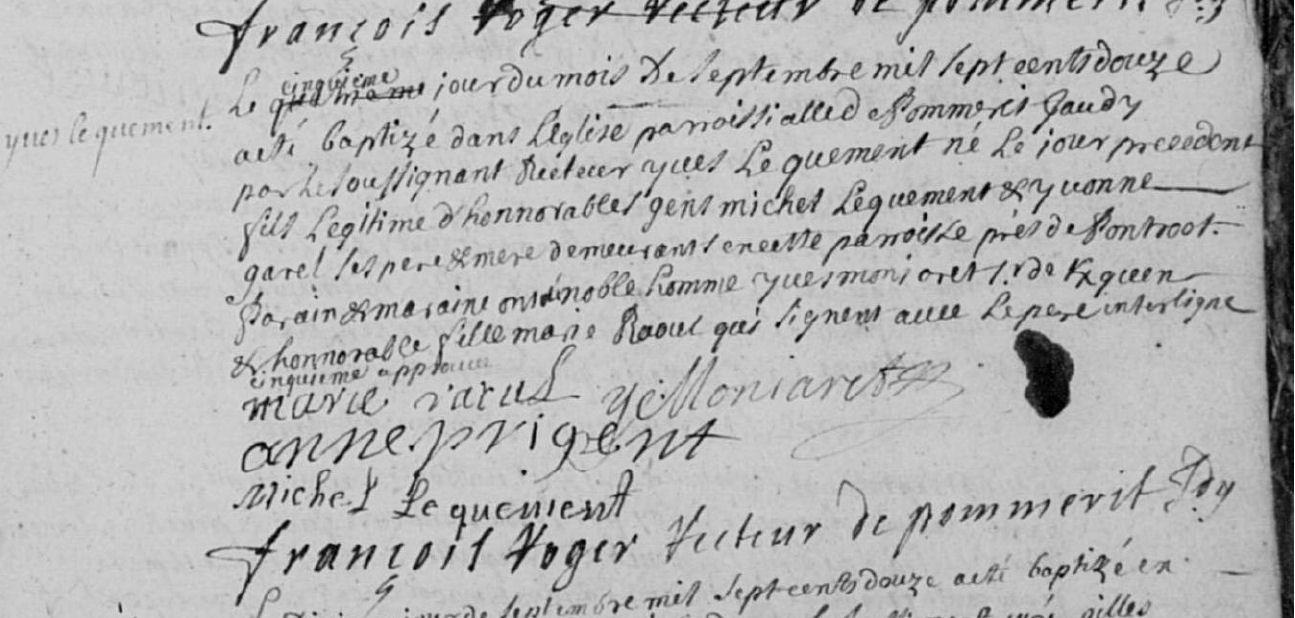 françois Voger recteur de pommerit
yves le quement.
Le cinquieme jour du mois de septembre mil sept cents douze
a eté baptizé dans L'eglise parroissialle de Pommerit Jaudy
par Le soussignant Recteur yves Le quement né Le jour precedent
fils Legitime d'honnorables gens michel Lequement & yvonne
garel ses pere & mere demeurants en cette parroisse près de Pontroot.
Parain & maraine ont été noble homme yves moniaret Sr de
& honnorable fille marie Raoul qui signent avec Le pere interligne
cinquieme approuvé
marie raoul y Moniaret
anne prigent
Michel Le quement
françois Voger recteur de pommerit Jdy
jour de septembre mil sept cents douze a eté baptizé en
gilles